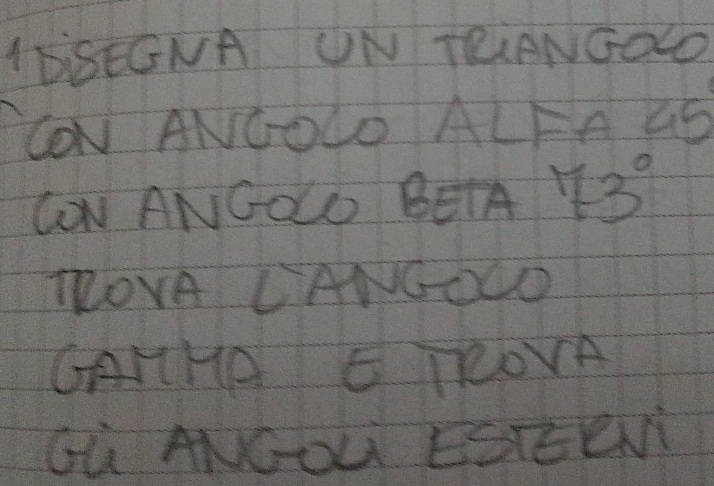 1 DISEGNA UN TRIANGOLO
CON ANGOLO ALFA 45°
CON ANGOLO BETA 73°
TROVA L'ANGOLO
GAMMA E TROVA
GLI ANGOLI ESTERNI